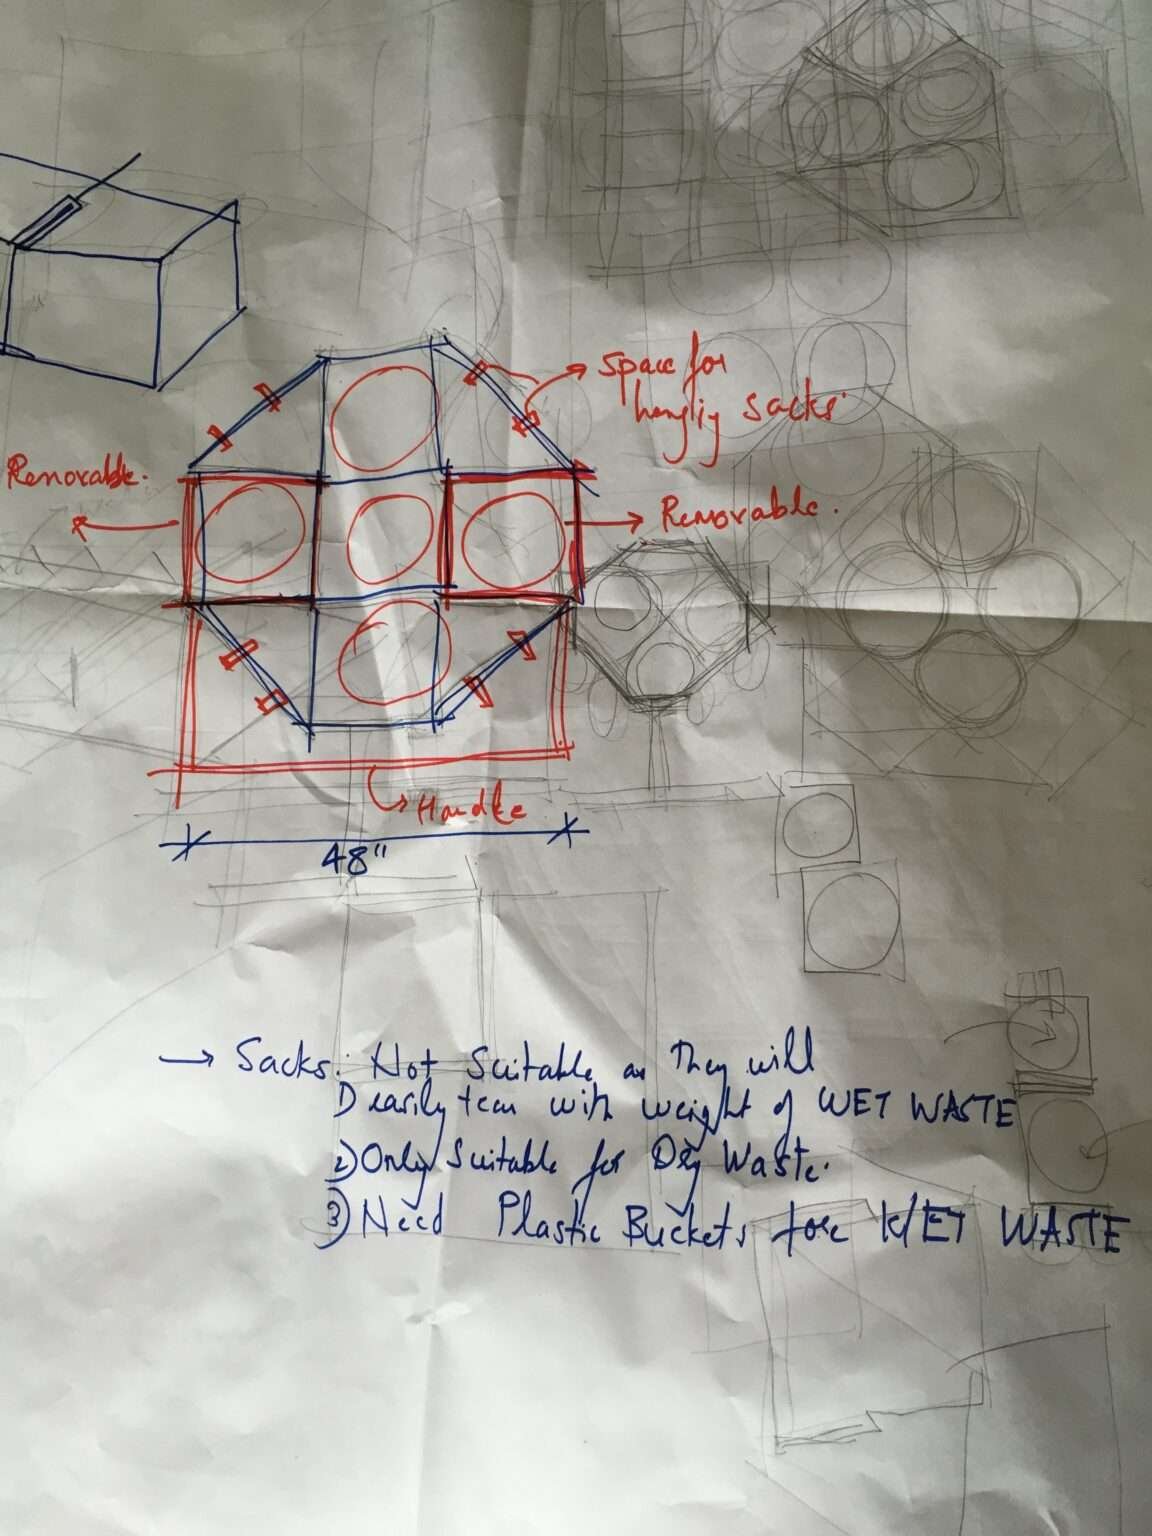 Space for
hanging sacks.
Removable.
Removable.
Handle
48"
→ Sacks: Not Suitable as They will
1) easily tear with weight of WET WASTE
2) Only Suitable for Dry Waste.
3) Need Plastic Buckets for WET WASTE